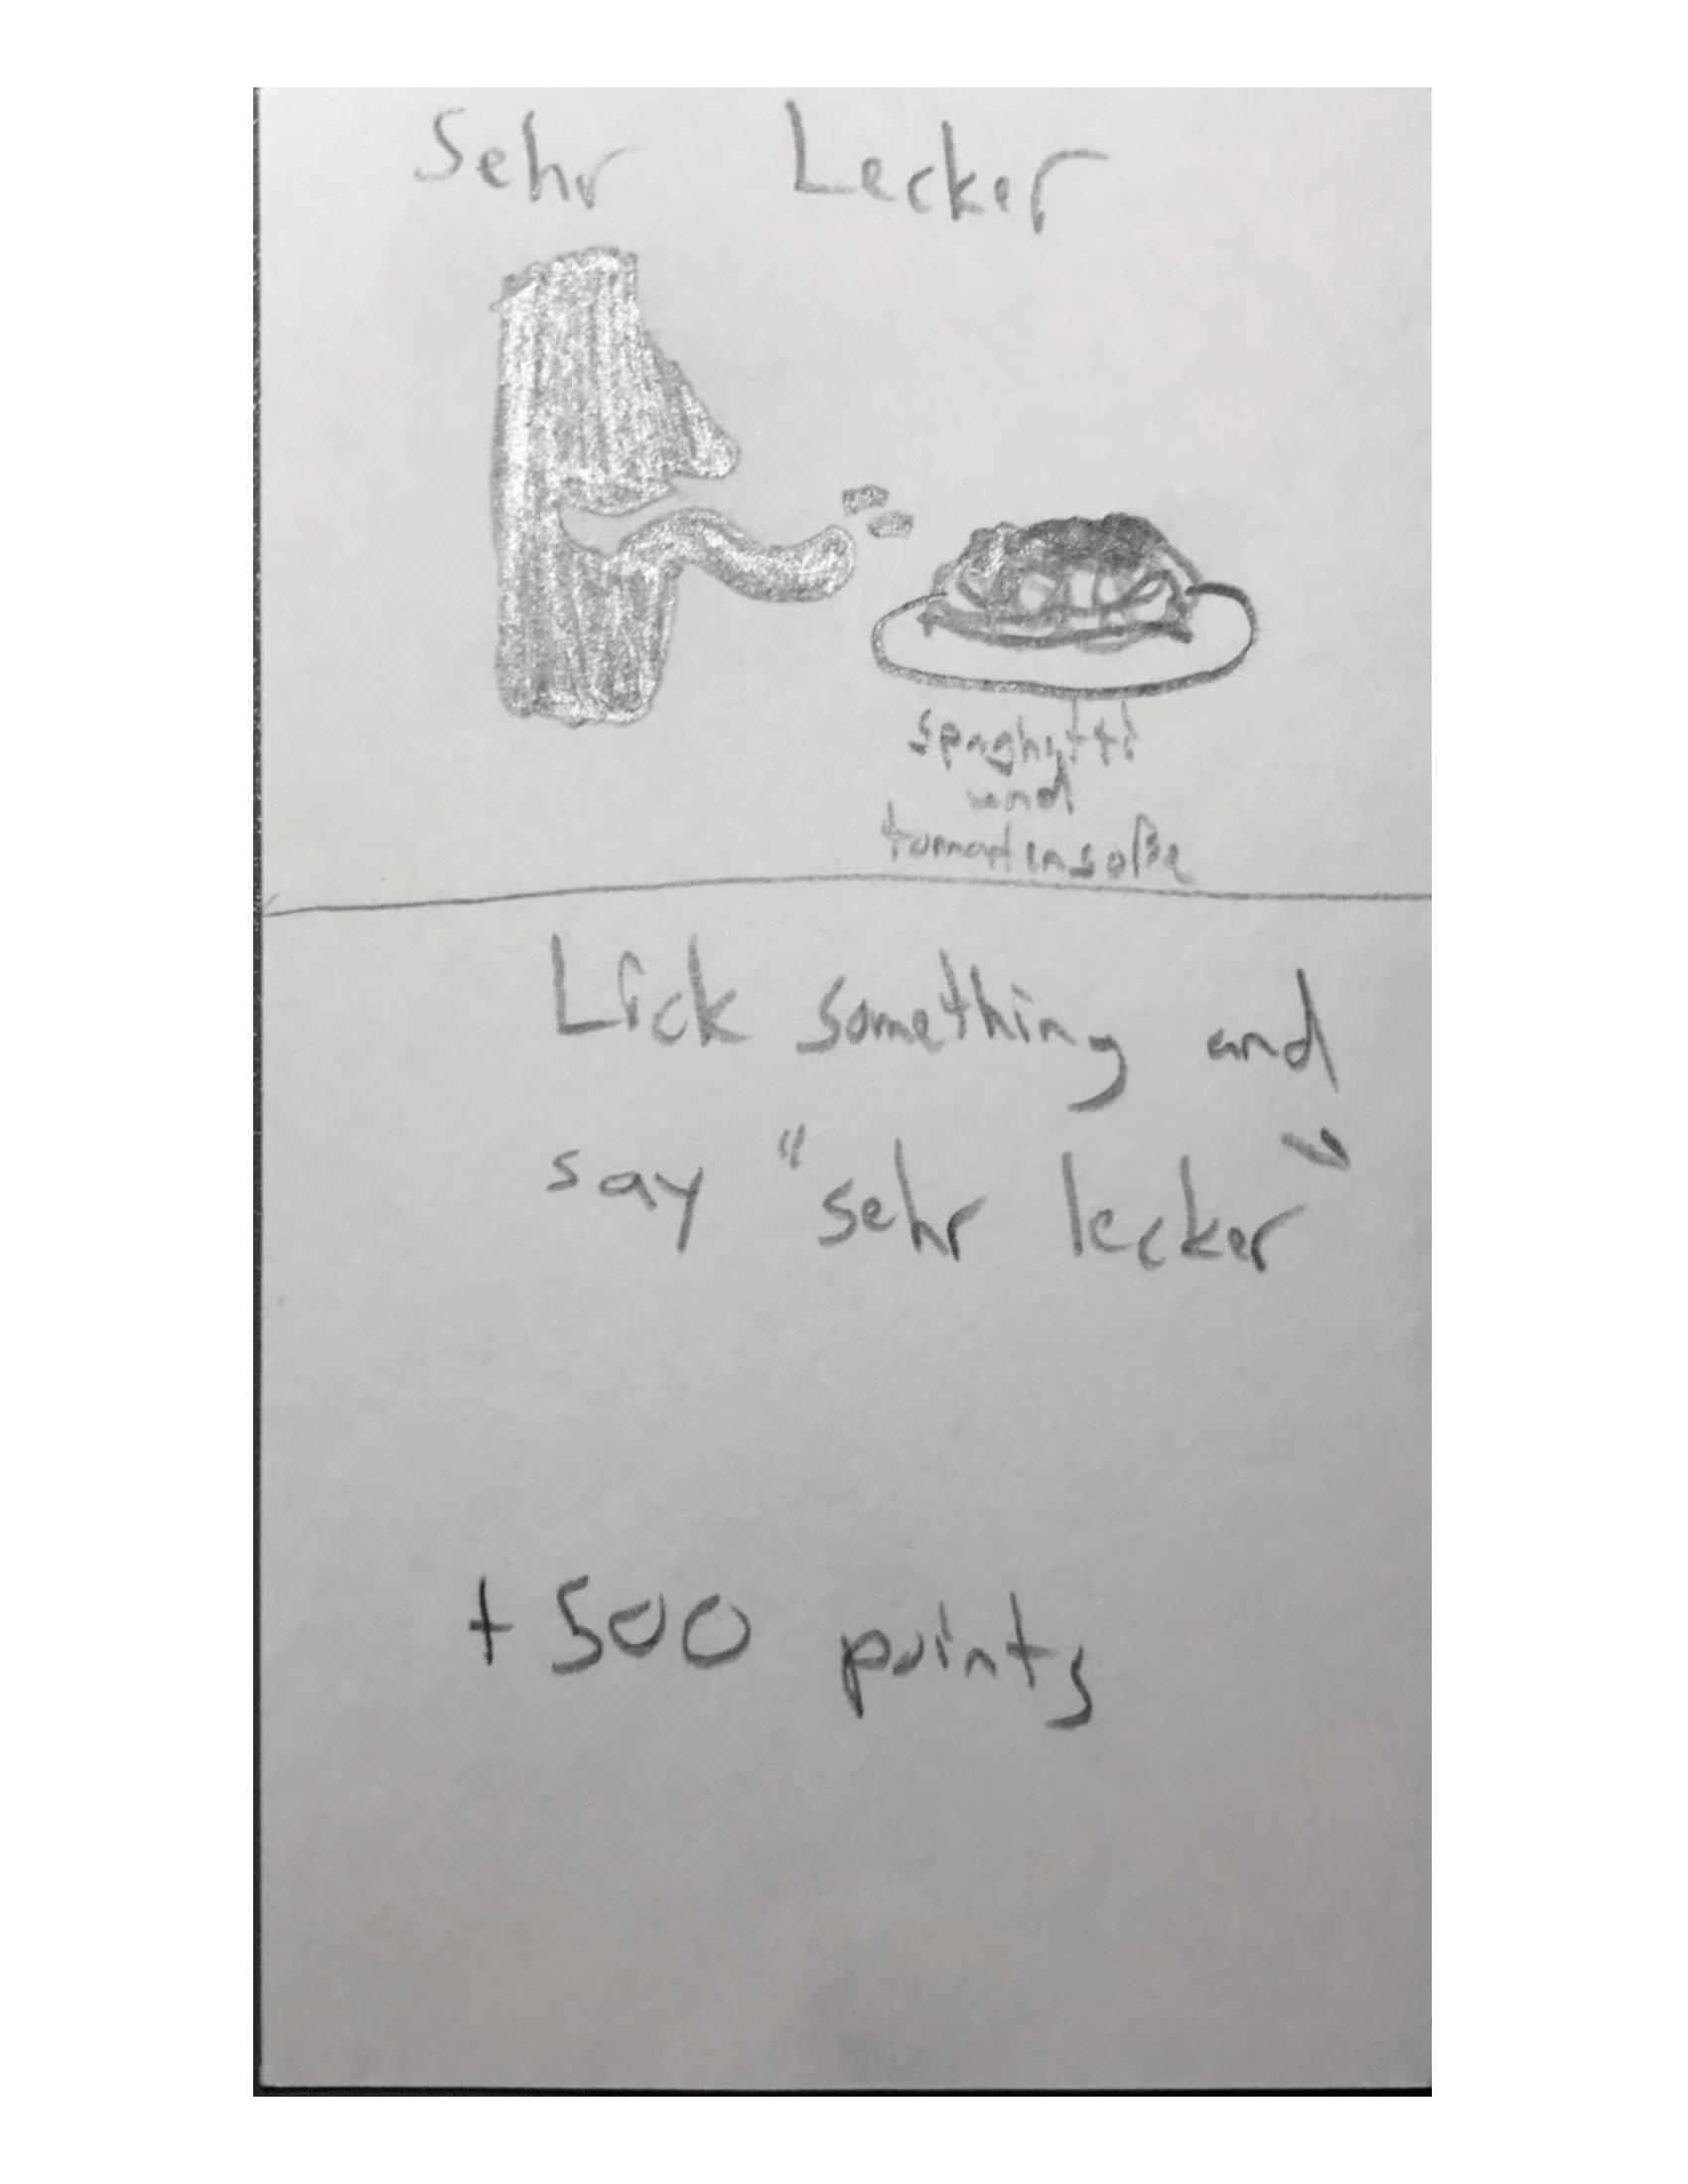 Sehr Lecker
spaghetti
und
tomatensoße
Lick something and
say "sehr lecker"
+500 points